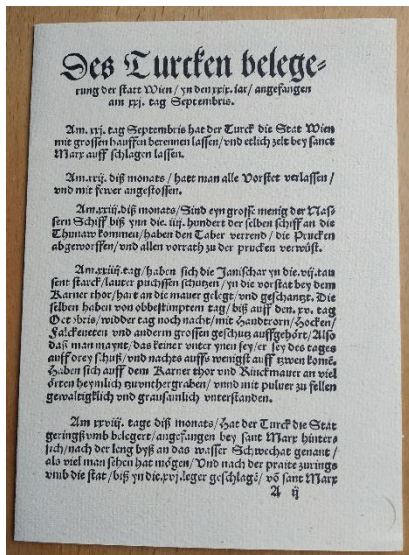 Des Turcken belege-
rung der statt Wien / yn den xxix. Jar / angefangen
am xxj. tag Septembris.
Am. xxj. tag Septembris hat der Turck die Stat Wien
mit grossen hauffen berennen lassen / vnd etlich zelt bey sanct
Marx auff schlagen lassen.
Am. xxij. diß monats / hatt man alle Vorstet verlassen /
vnd mit fewer angestossen.
Am. xxiij. diß monats / Sind eyn grosse menig der Nasö
sern Schiff biß ynn die. iiij. hundert der selben schiff an die
Thunaw kommen / haben den Taber verrend / die Prucken
abgeworffen / vnd allen vorrath zu der prucken verwüst.
Am. xxiiij. tag / haben sich die Janischar yn die. vij. tau
sent starck / lauter puchssen schutzen / yn die vorstat bey dem
Karner thor / hart an die mauer gelegt / vnd geschantzt. Die
selben haben von obbestimptem tag / biß auff den. xv. tag
Octobris / widder tag noch nacht / mit Handtrorn / Hocken /
Falckeneten vnd andern grossen geschutz auffgehört / Also
daß man maynt / das keiner vnter ynen sey / er sey des tages
auff drey schuß / vnd nachts auffs wenigst auff zwen komē.
Haben sich auff dem Karner thor vnd Rinckmauer an viel
örten heymlich zuvnthergraben / vnnd mit puluer zu fellen
gewaltigklich vnd grausamlich vnterstanden.
Am xxviij. tage diß monats / Hat der Turck die Stat
geringß vmb belegert / angefangen bey sant Marx hinter-
sich / nach der leng byß an das wasser Schwechat genant /
als viel man sehen hat mögen / Vnd nach der praite zurings
vmb die stat / biß yn die. xvj. leger geschlagē / vō sant Marx
A ij